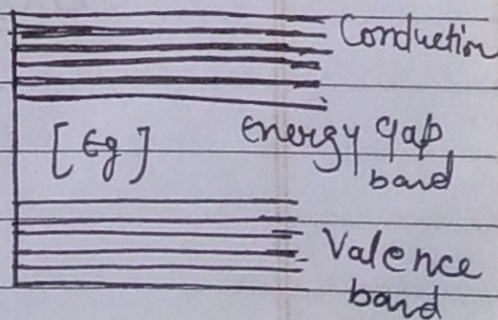 Conduction
[Eg] energy gap
band
Valence
band